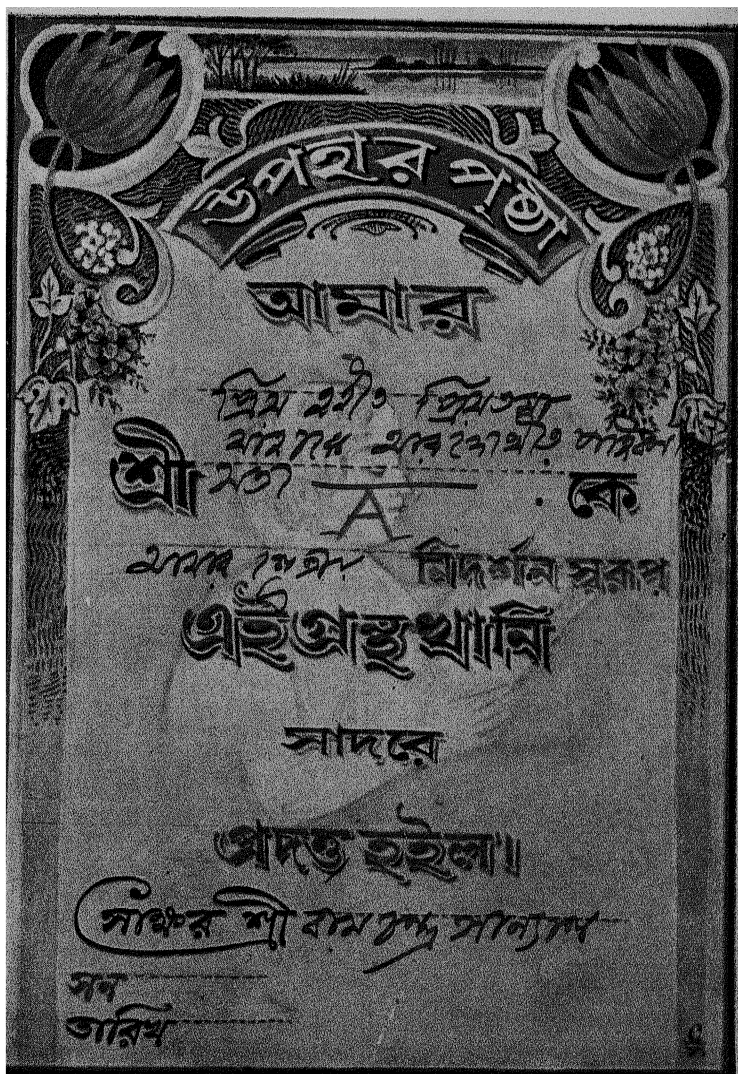 উপহার পৃষ্ঠা
আমার
প্রিয় প্রিয়তমা
শ্রী মতী A কে
আমার নিদর্শন স্বরূপ
এই গ্রন্থ খানি
সাদরে
প্রদত্ত হইল।
সাক্ষর শ্রী রাম চন্দ্র সান্যাল
সন
তারিখ